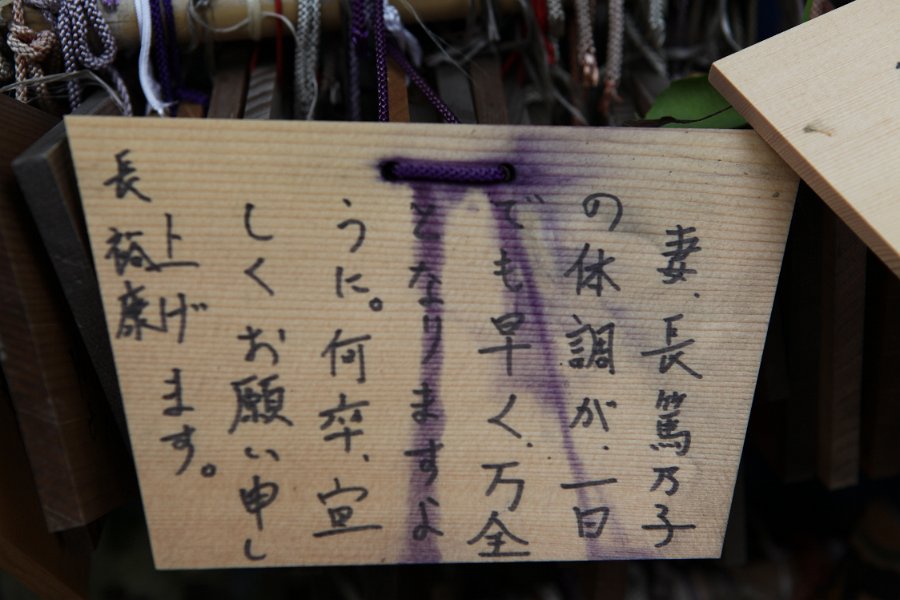 妻、長篤乃子
の体調が、一日
でも早く、万全
となりますよ
うに。何卒、宣
しくお願い申し
上げます。
長裕康